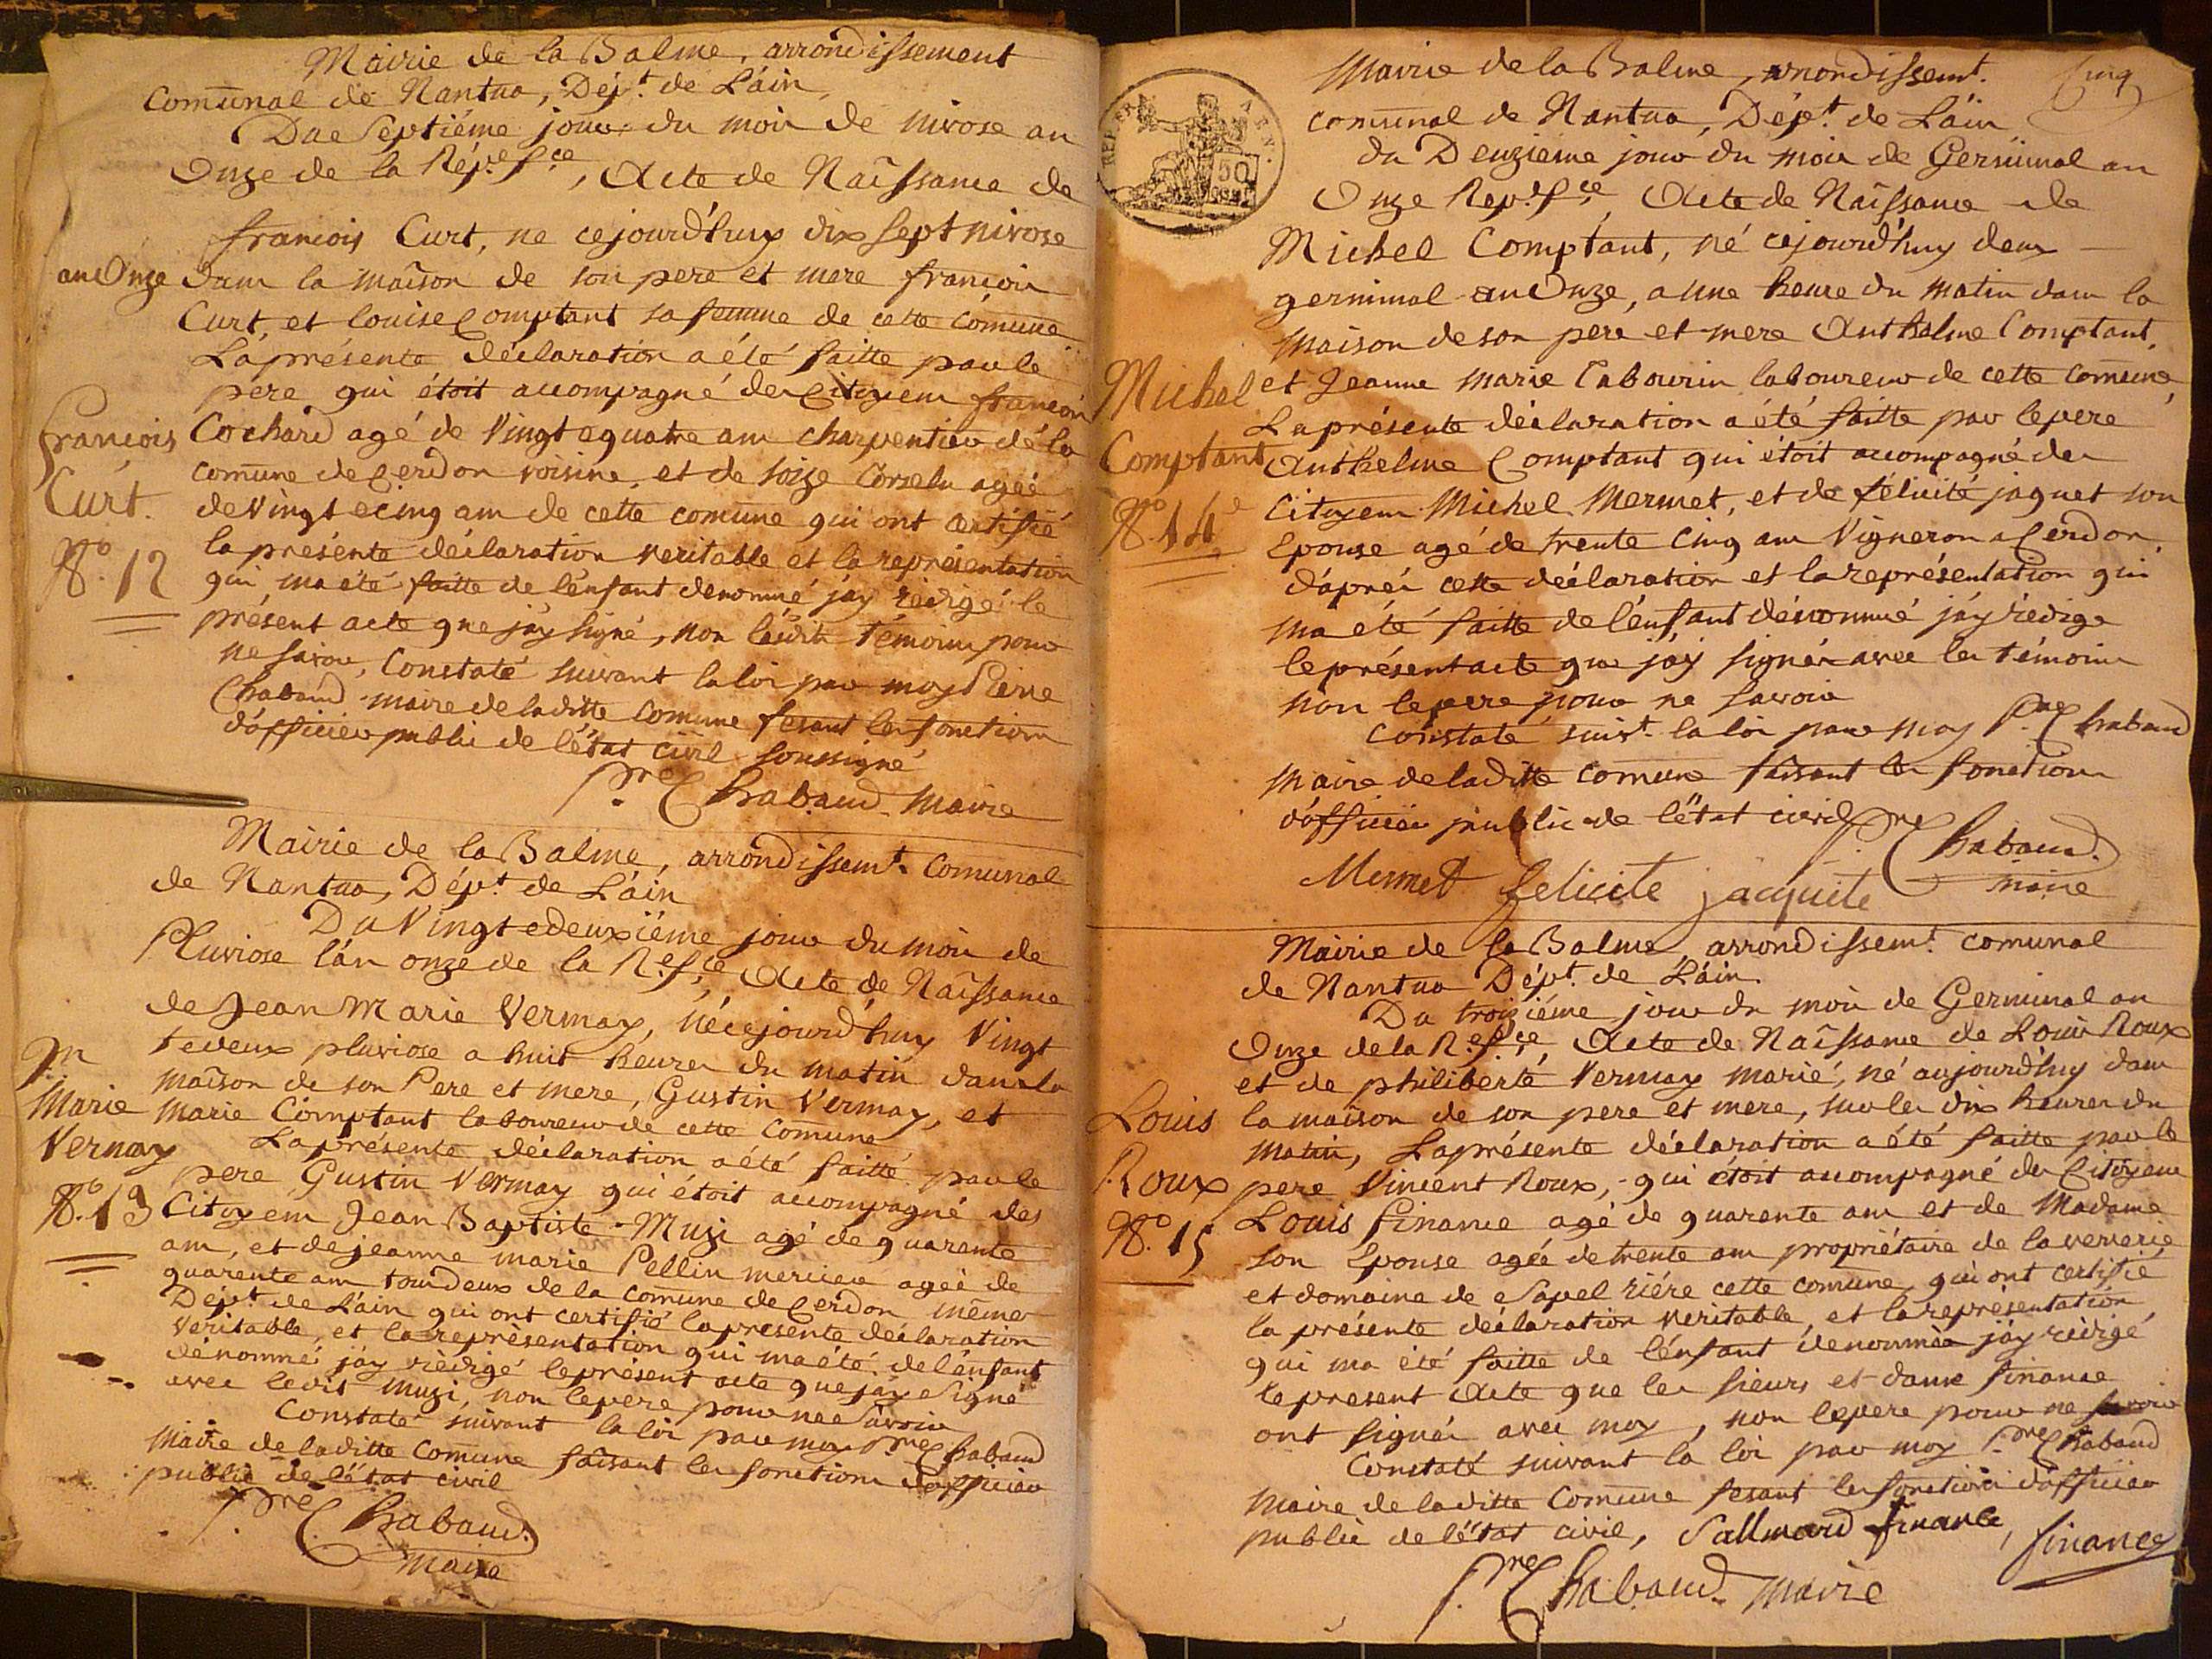 Mairie de la Balme, arrondissement
comunal de Nantua, Dép.t de L'áin,
Du Septiéme jour du mois de nivose an
Onze de la Rép.e f.ce, Acte de Naissance de
francois Curt, ne cejourd'huy dix sept nivose
an Onze dans la maison de son pere et mere francois
Curt, et louise Comptant sa femme de cette comune
La présente déclaration a été faitte par le
pere qui étoit accompagné des Citoyens francois
Cochard agé de vingt e quatre ans charpentier de la
comune de Cerdon voisine, et de
de vingt e cinq ans de cette comune qui ont certifié
la présente déclaration veritable et la représentation
qui ma été faitte de l'enfant denommé j'ay rédigé le
présent acte que j'ay signé, non lesdits témoins pour
ne savoir, Constaté suivant la loi par moy Pierre
Chabaud maire de laditte comune fesant les fonctions
d'officier public de l'état civil soussigné
P.re Chabaud Maire
francois
Curt.
N.o 12
Mairie de la Balme, arrondissem.t Comunal
de Nantua, Dép.t de L'áin
Du Vingt e deuxiéme jour du mois de
Pluviose l'an onze de la R.e f.ce, Acte de Naissance
de Jean Marie Vernay, né cejourd'huy vingt
t e deux pluviose a huit heures du matin dans la
maison de son Pere et mere, Gustin Vernay, et
Marie Comptant laboureur de cette Comune
La présente déclaration a été faitte par le
pere Gustin Vernay qui étoit accompagné des
Citoyens Jean Baptiste Muzi agé de quarente
ans, et de jeanne marie Pellin mercier agée de
quarente ans tous deux de la comune de Cerdon même
Dép.t de L'áin qui ont certifié la présente déclaration
Veritable, et la représentation qui ma été de l'enfant
dénommé j'áy rédigé le présent acte que j'áy signé
avec ledit muzi, non le pere pour ne Savoir
Constaté suivant la loi par moy P.re Chabaud
Maire de laditte Comune faisant les fonctions d'officier
public de l'état civil
P.re Chabaud.
Maire
J.n
Marie
Vernay
N.o 13
Cinq
Mairie de la Balme, arrondissem.t
comunal de Nantua, Dép.t de L'áin
du Deuzieme jour du mois de Germinal an
Onze Rep.e f.ce, Acte de Naissance de
Michel Comptant, né cejourd'huy deux
germinal an Onze, a une heure du matin dans la
maison de son pere et mere Anthelme Comptant,
et Jeanne Marie Tabourin laboureur de cette comune,
La présente déclaration a été faitte par le pere
Anthelme Comptant qui étoit accompagné des
Citoyens Michel Mermet, et de félicité jaquet son
Epouse agé de trente cinq ans Vigneron a Cerdon,
d'aprés cette déclaration et la représentation qui
ma été faitte de l'enfant dénommé j'áy rédigé
le présent acte que j'áy signés avec les témoins
non le pere pour ne savoir
Constaté suiv.t la loi par moy P.re Chabaud
Maire de laditte comune faisant les fonctions
d'officier public de l'état civil P.re Chabaud.
Mermet felicite jacquete maire
Michel
Comptant
N.o 14
50
Mairie de la Balme, arrondissem.t comunal
de Nantua Dép.t de L'áin
Du troiziéme jour du mois de Germinal an
Onze de la R.e f.ce, Acte de Naissance de Louis Roux
et de philiberte Vernay marié, né aujourd'huy dans
la maison de son pere et mere, sur les dix heures du
matin, La présente déclaration a été faitte par le
pere Vincent Roux, qui étoit accompagné des Citoyens
Louis finance agé de quarente ans et de Madame
son Epouse agée de trente ans propriétaire de la verrerie
et domaine de Sapel riére cette comune, qui ont certifié
la présente déclaration veritable, et la représentation
qui ma été faitte de l'enfant dénommée j'áy rédigé
le present Acte que les sieurs et dame finance
ont signés avec moy, non le pere pour ne savoir
Constaté suivant la loi par moy P.re Chabaud
Maire de laditte Comune fesant les fonctions d'officier
public de l'état civil, Sallmard finance, finance
P.re Chabaud. Maire
Louis
Roux
N.o 15